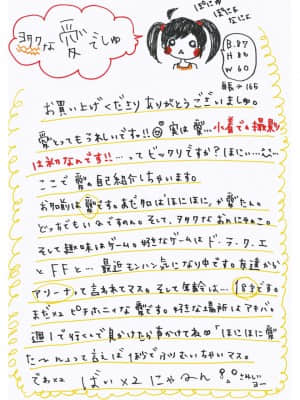 ヲタクな愛でしゅ
ぽにゅ
ぽにる
なにょ
B.87
H 86
W 60
身長→165
お買い上げくださりありがとうございましゅ。
愛とってもうれしいです!!実は愛…水着での撮影
は初なんです!!…ってビックリですか?ほにぃ…
ここで愛の自己紹介しちゃいます。
お名前は愛です。あだ名は「ほにほに」か愛たん。
どっちでもいいのですぅ。そして、ヲタクなおんにゃのこ。
そして趣味はゲーム。好きなゲームはド.ラ.ク.エ
とFFと…最近モンハン気になり中です。友達から
アリーナって言われてマス。そして年齢は…18才です。
まだ××ピチホニャな愛です。好きな場所はアキバ。
週1で行くんで見かけたが声かけてね「ほにほに愛
た〜ん」って言えば1秒でふりむいちゃいマス。
でゎ×2 ばい×2にゃーん